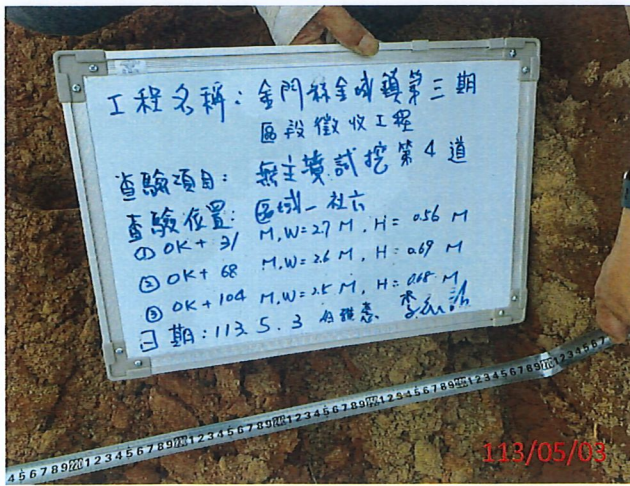 工程名稱：金門縣金城鎮第三期
區段徵收工程
查驗項目：無主墳試挖第4道
查驗位置：區域一 社六
① 0K+31 M,W=2.7 M,H=0.56 M
② 0K+68 M,W=2.6 M,H=0.69 M
③ 0K+104 M,W=2.5 M,H=0.68 M
日期：113.5.3
113/05/03